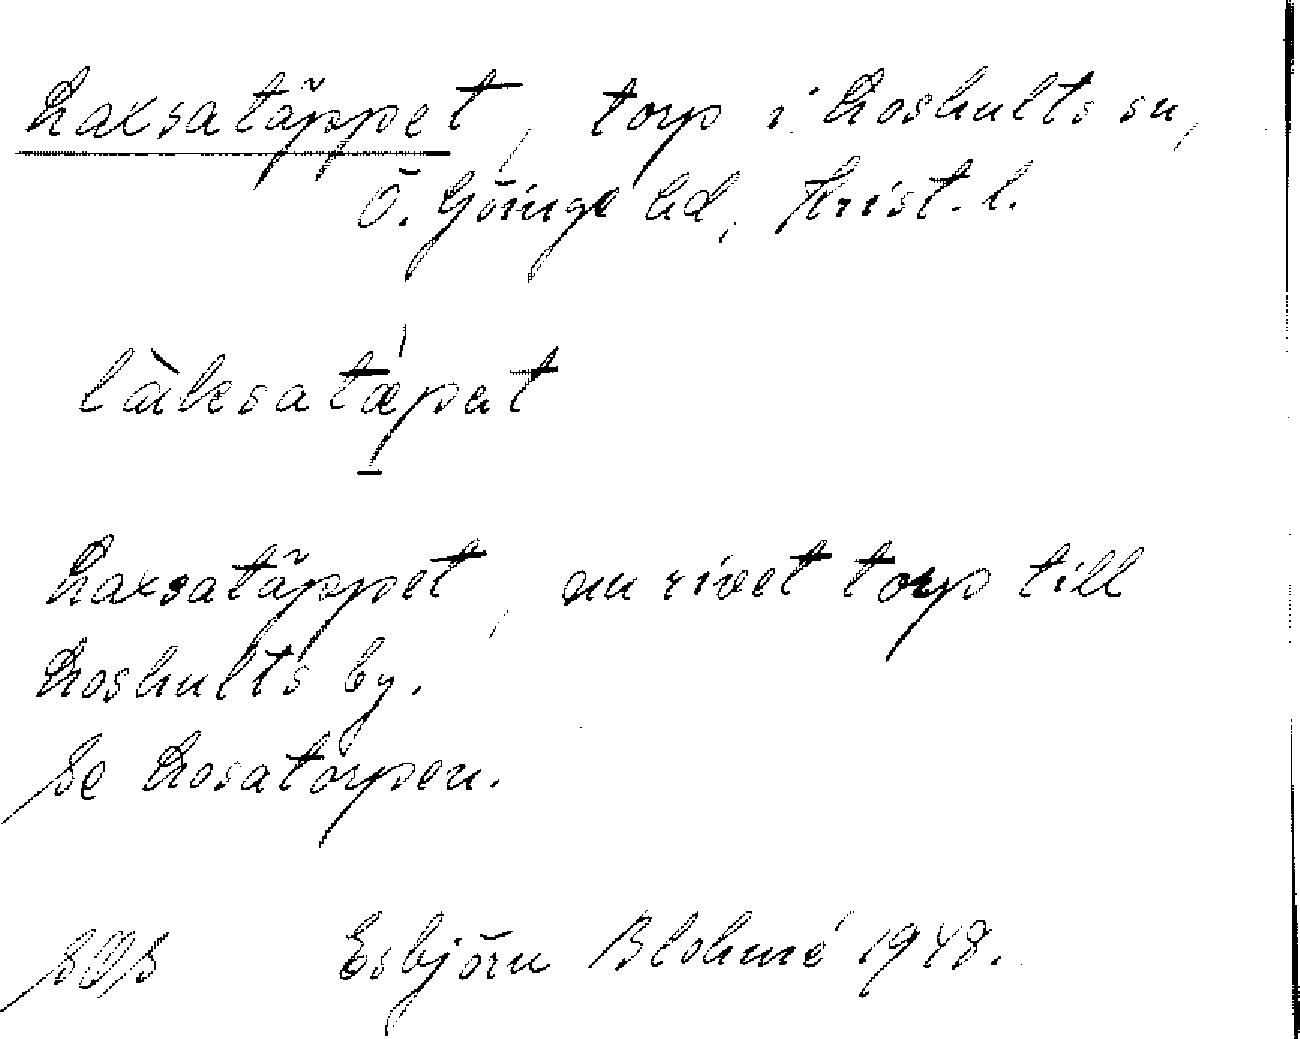 Laxsatäppet, torp i Loshults sn,
Ö. Göinge hd, Krist. l.
làksatæ̍pat
Laxsatäppet, nu rivet torp till
Loshults by.
Se Losatorpen.
SOS Esbjörn Blohmé 1948.